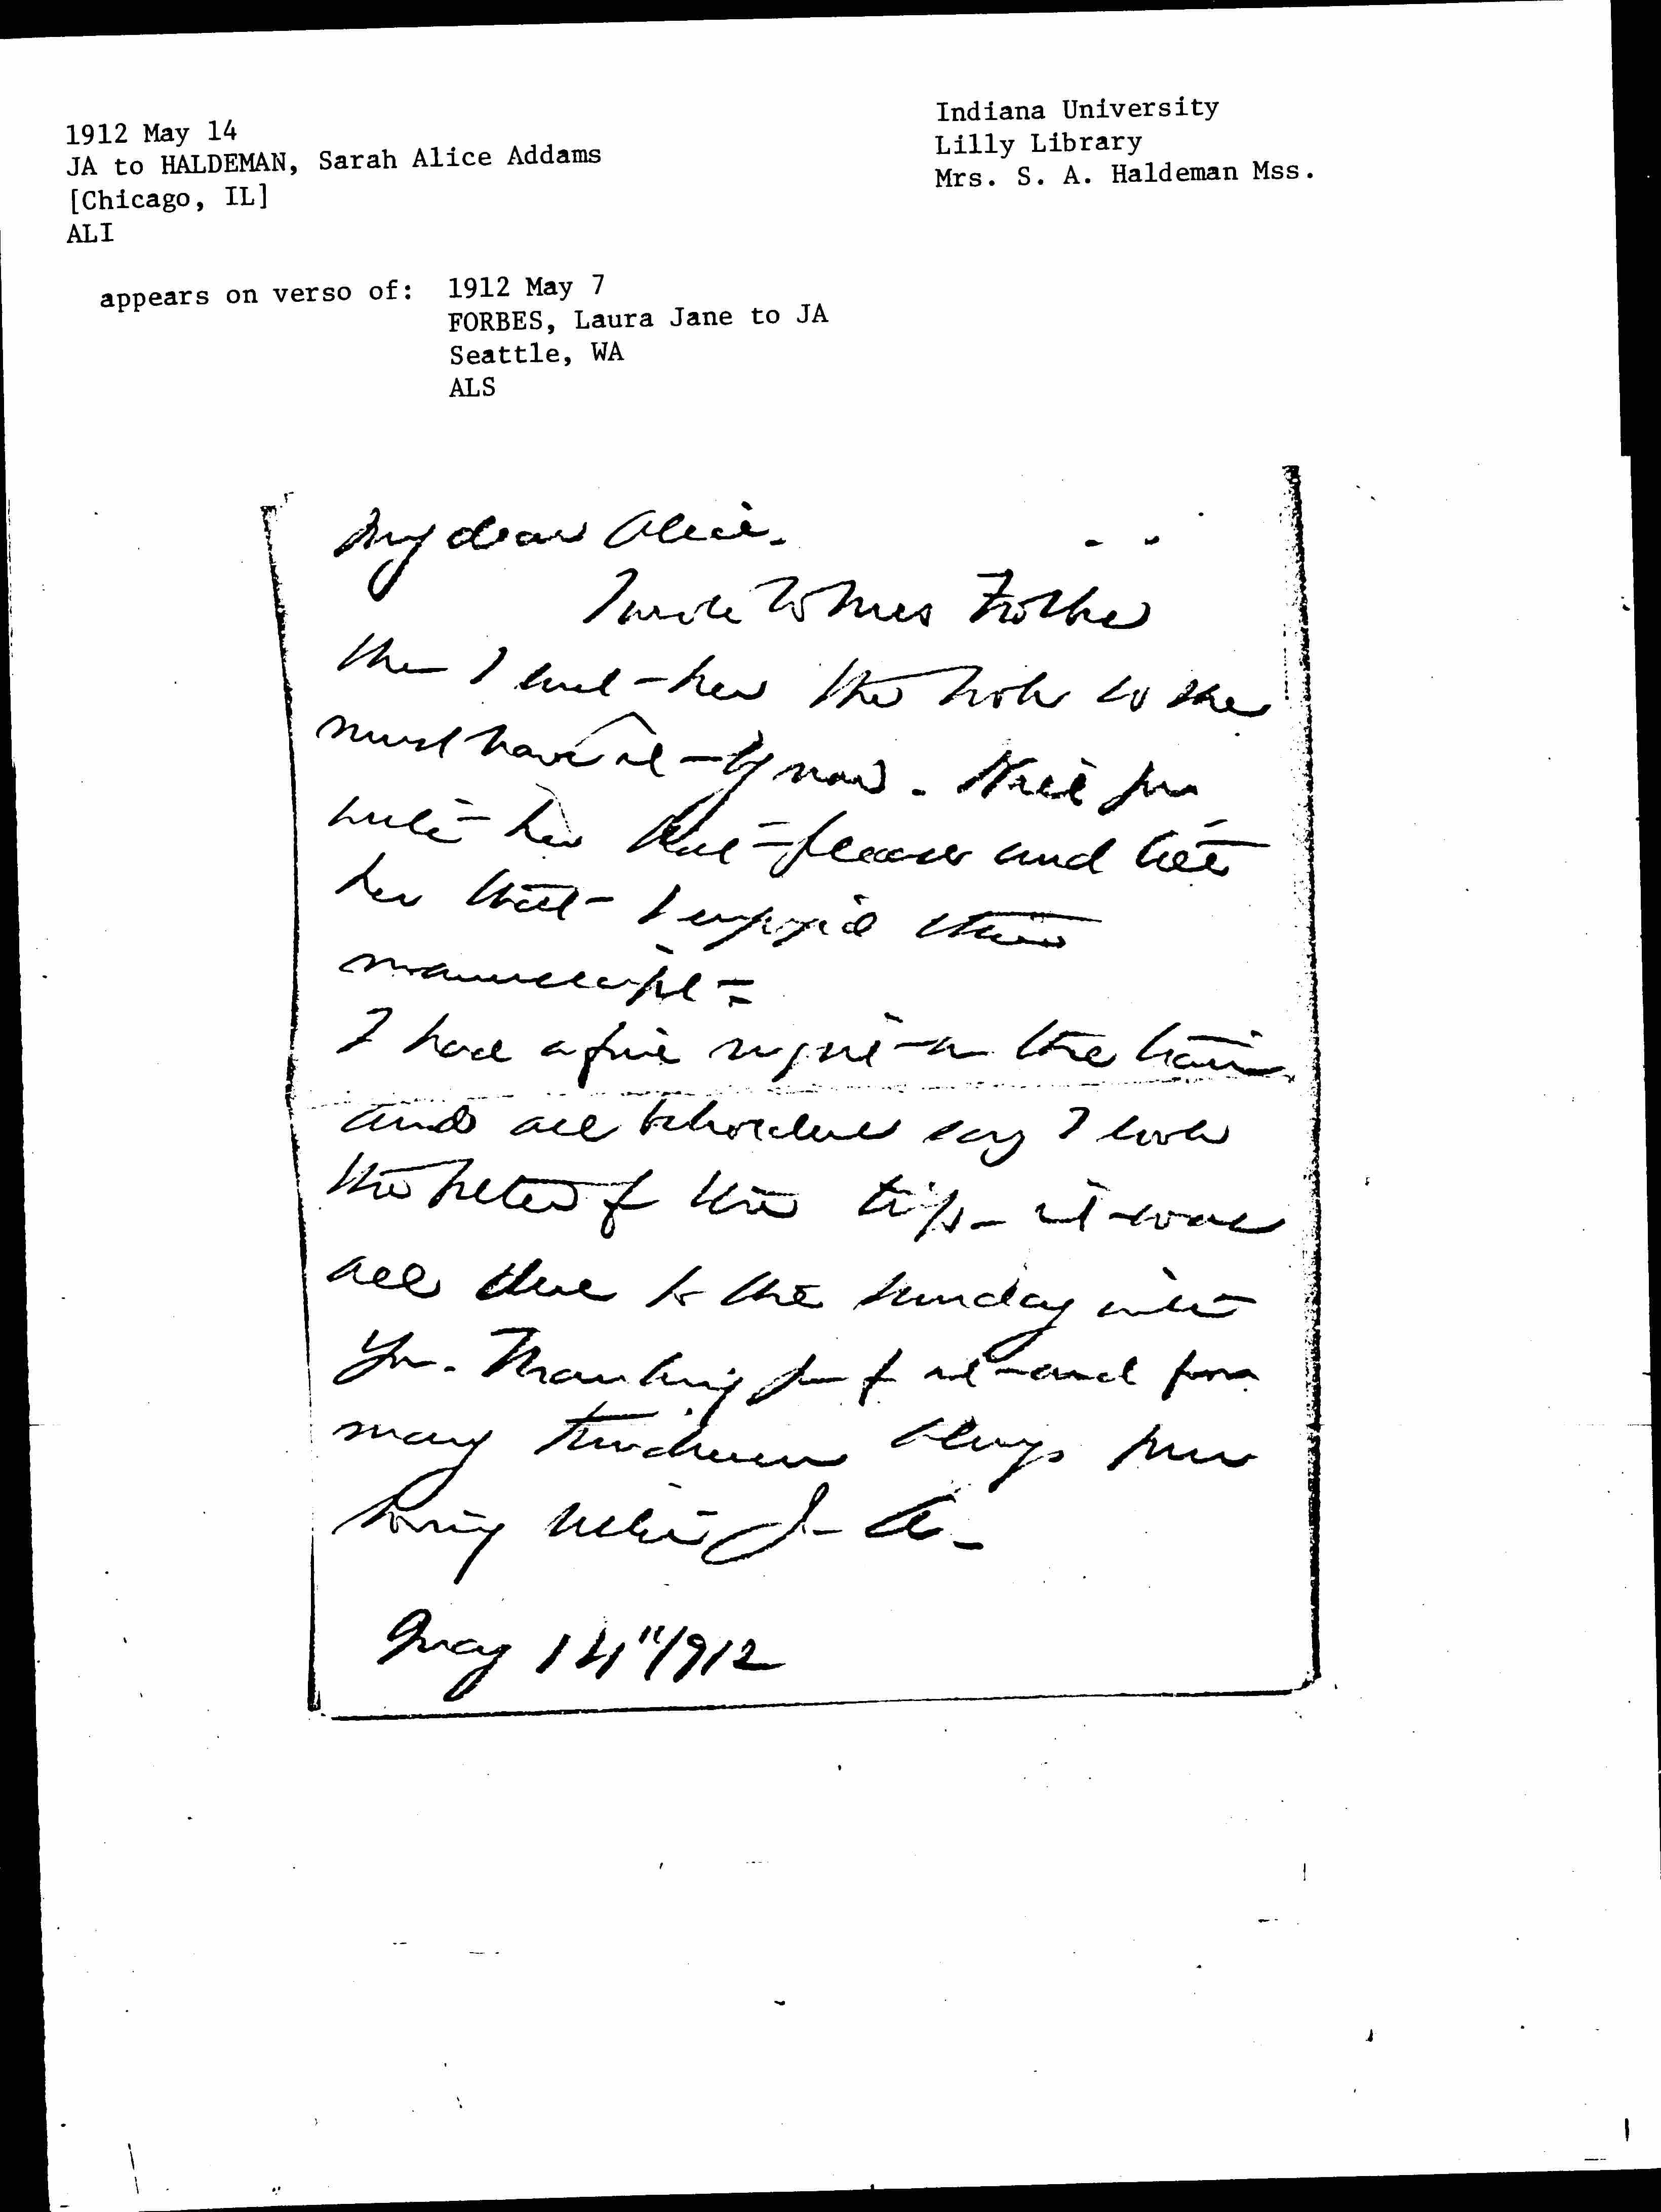 1912 May 14
JA to HALDEMAN, Sarah Alice Addams
[Chicago, IL]
ALI
Indiana University
Lilly Library
Mrs. S. A. Haldeman Mss.
appears on verso of: 1912 May 7
FORBES, Laura Jane to JA
Seattle, WA
ALS
My dear Alice.
I wrote to Mrs
the I sent her the note so she
must have it - by now. Will you
write her please and tell
her that I enjoyed the
manuscript -
I had a fine night on the train
and all beholders say I look
the better for the trip - it was
all due to the Sunday with
you. Thanking you for it - and for
many kindnesses always your
loving sister J- A-
May 14" 1912